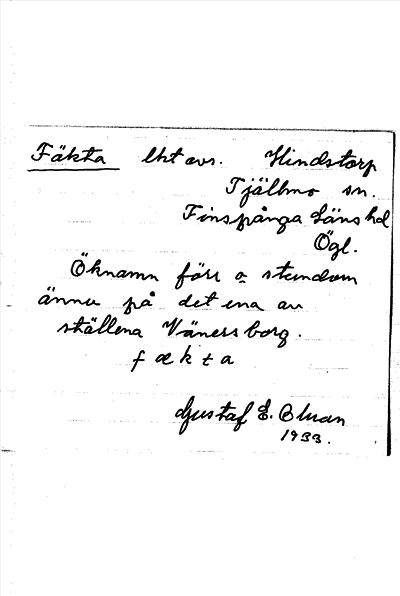 Fäkta lht avs. Hindstorp
Tjällmo sn.
Finspånga Läns hd
Ögl.
Öknamn förr o stundom
ännu på det ena av
ställena Vänersborg.
fækta
Gustaf E. Olman
1933.